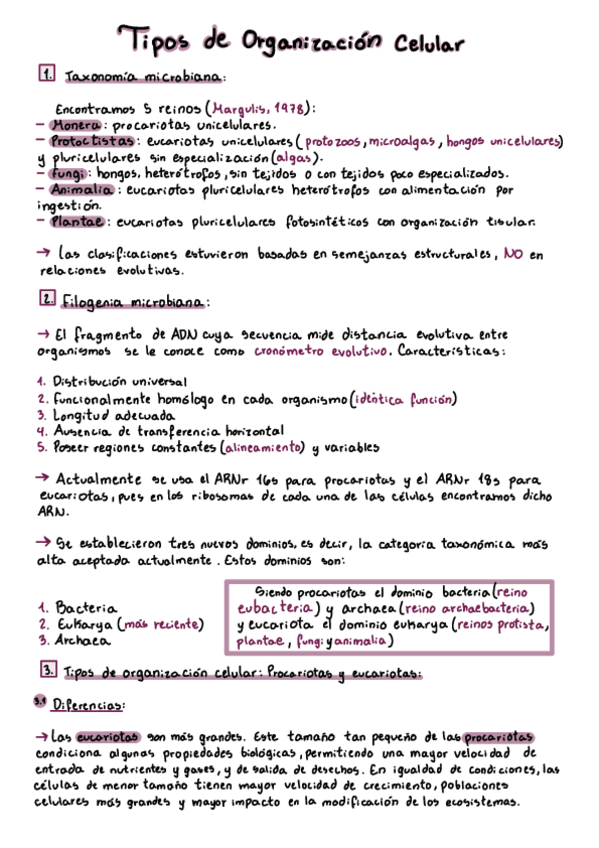 Tipos de Organización Celular
1. Taxonomía microbiana:
Encontramos 5 reinos (Margulis, 1978):
– Monera: procariotas unicelulares.
– Protoctistas: eucariotas unicelulares (protozoos, microalgas, hongos unicelulares)
y pluricelulares sin especialización (algas).
– Fungi: hongos, heterótrofos, sin tejidos o con tejidos poco especializados.
– Animalia: eucariotas pluricelulares heterótrofos con alimentación por
ingestión.
– Plantae: eucariotas pluricelulares fotosintéticos con organización tisular.
→ Las clasificaciones estuvieron basadas en semejanzas estructurales, NO en
relaciones evolutivas.
2. Filogenia microbiana:
→ El fragmento de ADN cuya secuencia mide distancia evolutiva entre
organismos se le conoce como cronómetro evolutivo. Características:
1. Distribución universal
2. Funcionalmente homólogo en cada organismo (idéntica función)
3. Longitud adecuada
4. Ausencia de transferencia horizontal
5. Poseer regiones constantes (alineamiento) y variables
→ Actualmente se usa el ARNr 16s para procariotas y el ARNr 18s para
eucariotas, pues en los ribosomas de cada una de las células encontramos dicho
ARN.
→ Se establecieron tres nuevos dominios, es decir, la categoría taxonómica más
alta aceptada actualmente. Estos dominios son:
1. Bacteria
2. Eukarya (más reciente)
3. Archaea
Siendo procariotas el dominio bacteria (reino
eubacteria) y archaea (reino archaebacteria)
y eucariota el dominio eukarya (reinos protista,
plantae, fungi y animalia)
3. Tipos de organización celular: Procariotas y eucariotas:
3.1 Diferencias:
→ Las eucariotas son más grandes. Este tamaño tan pequeño de las procariotas
condiciona algunas propiedades biológicas, permitiendo una mayor velocidad de
entrada de nutrientes y gases, y de salida de desechos. En igualdad de condiciones, las
células de menor tamaño tienen mayor velocidad de crecimiento, poblaciones
celulares más grandes y mayor impacto en la modificación de los ecosistemas.